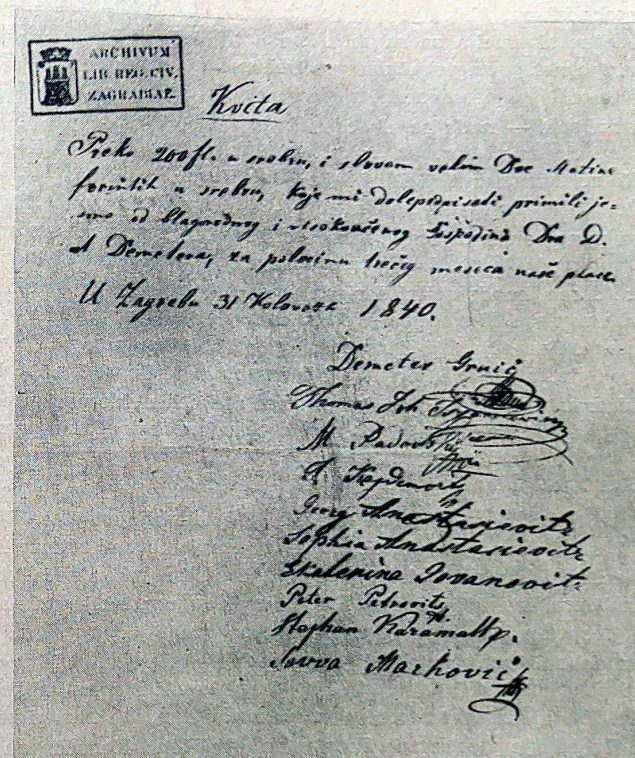 ARCHIVUM
LIB. REG. CIV.
ZAGRABIAE.
Kvita
Preko 200 fl. u srebru, i slovom velim Dve Stotine
forintih u srebru, koje mi dolepodpisati primili je-
smo od blagorodnog i visokoučenog Gospodina Dra D.
Demetera, za polovinu trećeg meseca naše plaće.
U Zagrebu 31 Kolovoza 1840.
Demeter Gruić
Thomas
M.
Georg Anastasievitz
Sophia Anastasievitz
Ekaterina Jovanovitz
Peter Petrovits
Stephan Karamall
Savva Marković